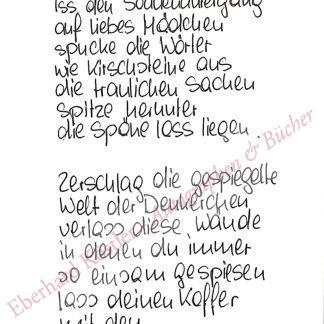 iss den Sonnenuntergang
auf liebes Mädchen
spucke die Wörter
wie Kirschsteine aus
die traulichen Sachen
spitze herunter
die Späne lass liegen.
zerschlag die gespiegelte
Welt der Denkerchen
verlass diese Wände
in denen du immer
so einsam gespiesen
lass deinen Koffer
mit den
Eberhard Köstler Autographen & Bücher